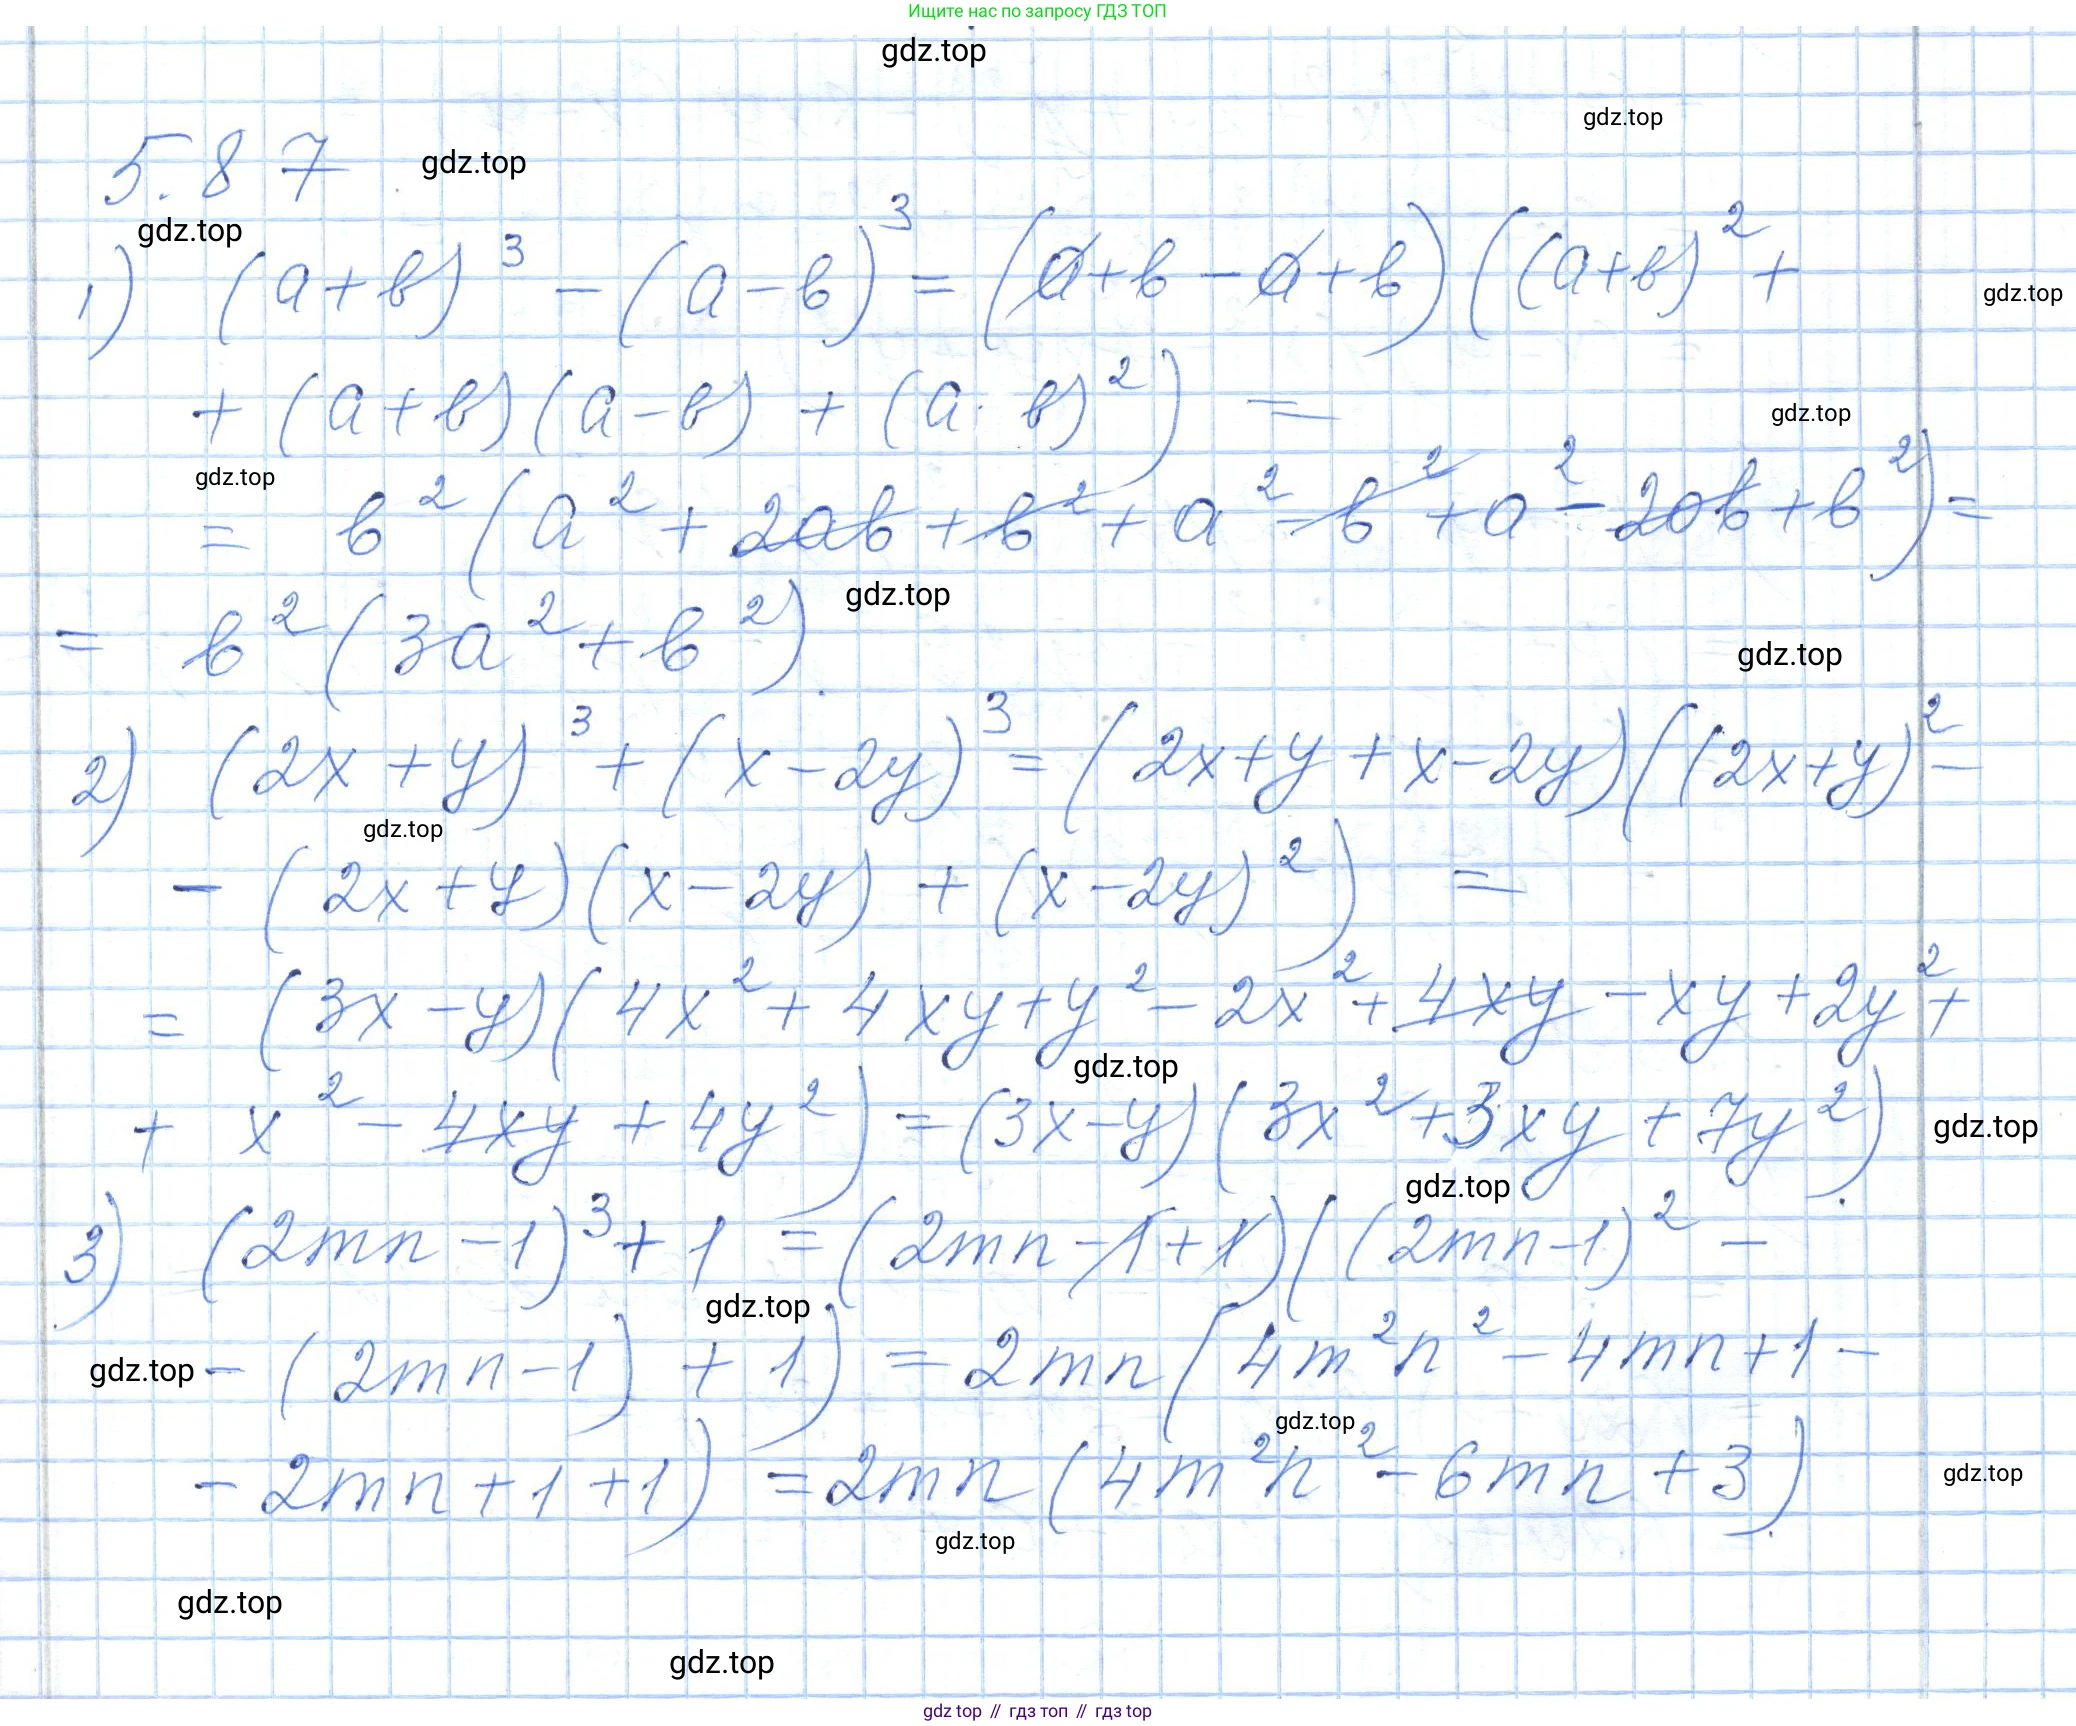 Ищите нас по запросу ГДЗ ТОП
gdz.top
gdz.top
5.87 gdz.top
gdz.top
1) (a+b)³ − (a−b)³ = (a+b−a+b)((a+b)² +
gdz.top
+ (a+b)(a−b) + (a· b)²) =
gdz.top
gdz.top
= b² (a² + 2ab + b² + a² − b² + a² − 2ab + b²) =
gdz.top
= b² (3a² + b²).
gdz.top
2) (2x+y)³ + (x−2y)³ = (2x+y+x−2y)((2x+y)² −
gdz.top
− (2x+y)(x−2y) + (x−2y)²) =
= (3x−y)(4x² + 4xy + y² − 2x² + 4xy − xy + 2y² +
gdz.top
+ x² − 4xy + 4y²) = (3x−y)(3x² + 3xy + 7y²).
gdz.top
gdz.top
3) (2mn−1)³ + 1 = (2mn−1+1)((2mn−1)² −
gdz.top
gdz.top − (2mn−1) + 1) = 2mn(4m²n² − 4mn + 1 −
gdz.top
− 2mn + 1 + 1) = 2mn(4m²n² − 6mn + 3).
gdz.top
gdz.top
gdz.top
gdz.top
gdz top // гдз топ // gdz top